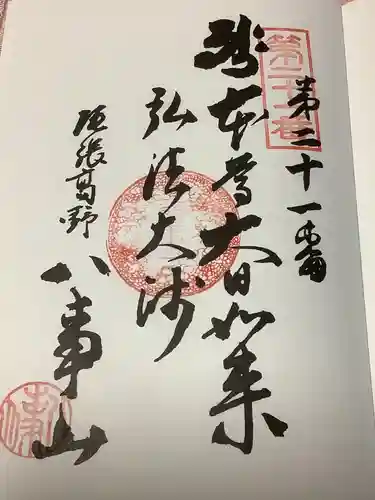 第二十一番
第二十一番
弥本尊大日如来
弘法大師
尾張高野
八事山